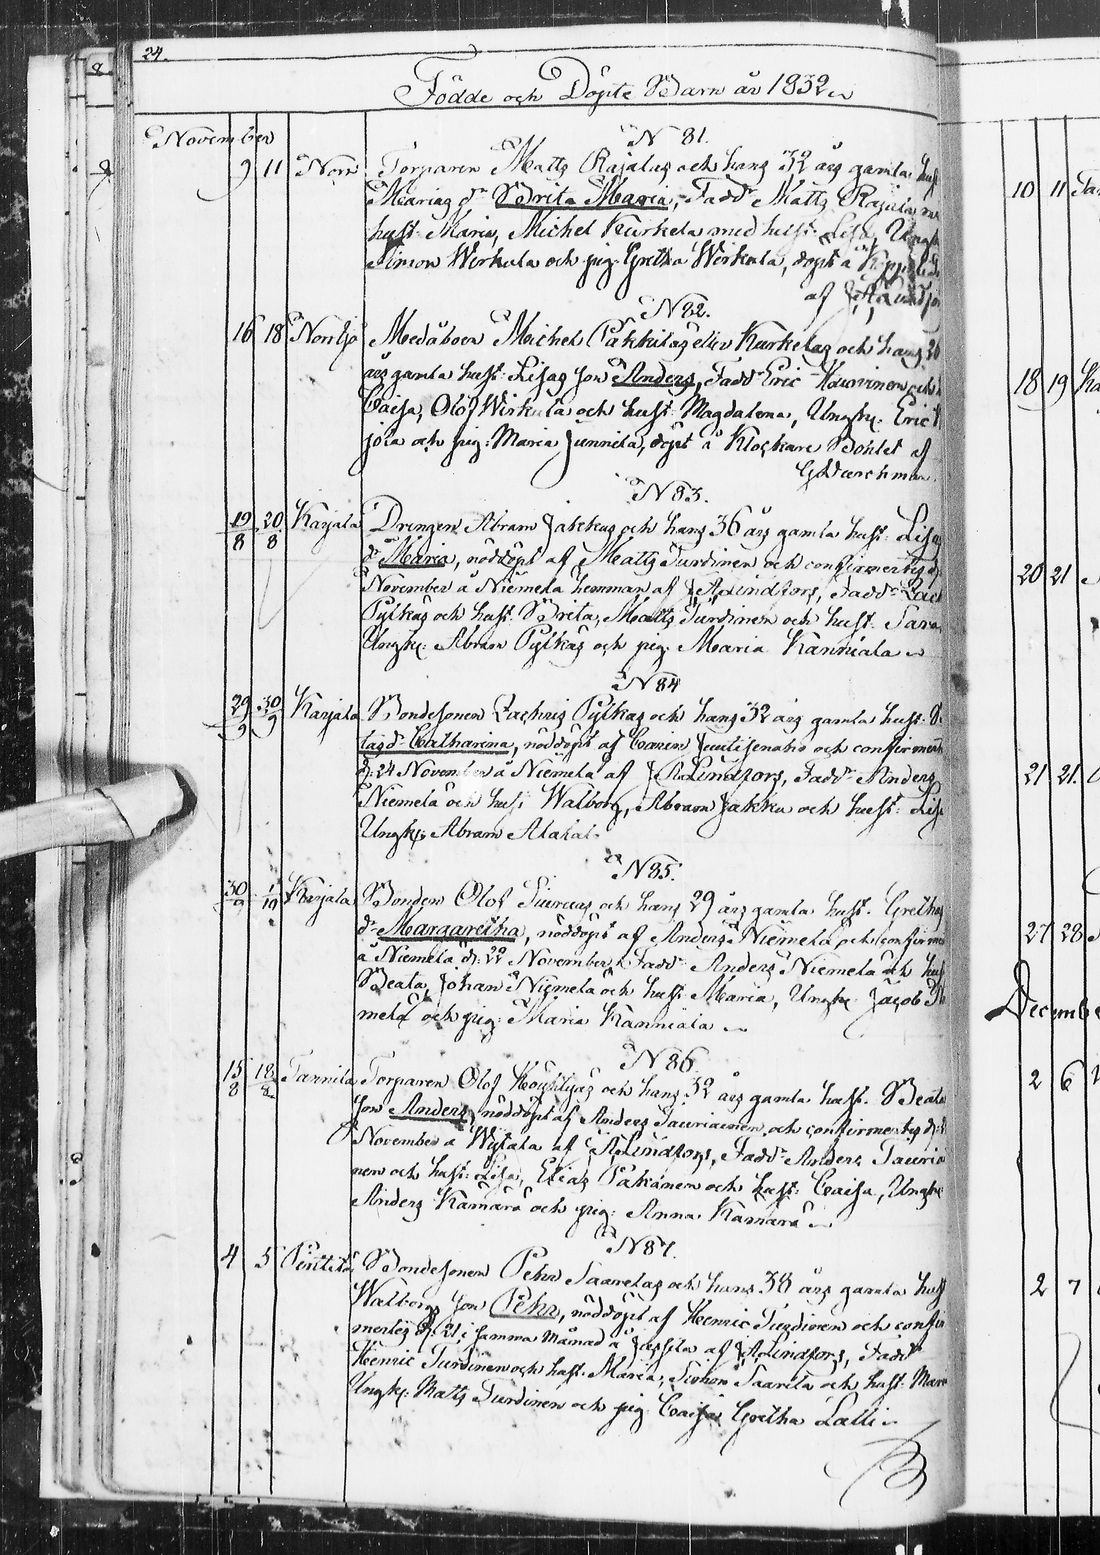 24.
Födde och Döpte Barn år 1832
November
N 81.
9 11 Norr Torparen Matts Rajalas och hans 32 års gamla hust
Marias dr Brita Maria, Fadd Matts Rajala
hust: Maria, Michel Kurkela med hust: Lisa, Ungk
Simon Wirkula och pig. Gretha Wirkula, döpt å
af
N 82.
16 18 Michel Pakkilas eller Kurkelas och hans
års gamla hust: Lisas son Anders, Fadd Eric och
Caisa, Olof Wirkula och hust: Magdalena, Ungk: Eric
och pig: Maria Junnila, döpt å Klockare Bohlet af

N 83.
19/8 20/8 Karjala Drengen Abram Jakkus och hans 36 års gamla hust: Lisas
dr Maria, nöddöpt af Matts Turdinen och confirmertes d:
November å Niemela hemman af J A Lindfors, Fadd
Pylkäs och hust: Breta, Matts Turdinen och hust: Sara
Ungk: Abram Pylkäs och pig: Maria Kanniala
N 84
29/9 30/9 Karjala Bondesonen Zachris Pylkas och hans 32 års gamla hust:
dr Catharina, nöddöpt af Carin och confirmert
d: 24 November å Niemela af J A Lindfors, Fadd Anders
Niemela och hust Walborg, Abram Jakku och hust: Lisa
Ungk: Abram
N 85.
30/9 1/10 Karjala Bonden Olof och hans 29 års gamla hust. Grethas
dr Margaretha, nöddöpt af Anders Niemela och confirme
å Niemela d: 22 November, Fadd Anders Niemela och hust
Beata, Johan Niemela och hust: Maria, Ungk: Jacob
mela och pig: Maria Kanniala
N 86.
15/8 18/8 Tannila Torparen Olof och hans 32 års gamla hust. Beatas
son Anders, nöddöpt af Anders Tauriainen och confirmertes d:
November å af J A Lindfors, Fadd Anders Tauriai
nen och hust: Lisa, Elias Pakanen och hust: Caisa, Ungk:
Anders Kamara och pig: Anna Kamara
N 87.
4 5 Penttilä Bondesonen Pehr Saarelas och hans 38 års gamla hust
Walborgs son Pehr, nöddöpt af Henric Turdinen och confir
mertes d: 21 i samma Månad å af J A Lindfors, Fadd
Henric Turdinen och hust: Maria, Simon Saarela och hust: Mar
Ungk: Matts Turdinen och pig: Caisa Gretha Lalli
10 11
18 19
20 21
21 21.
27 28
December
2 6
2 7